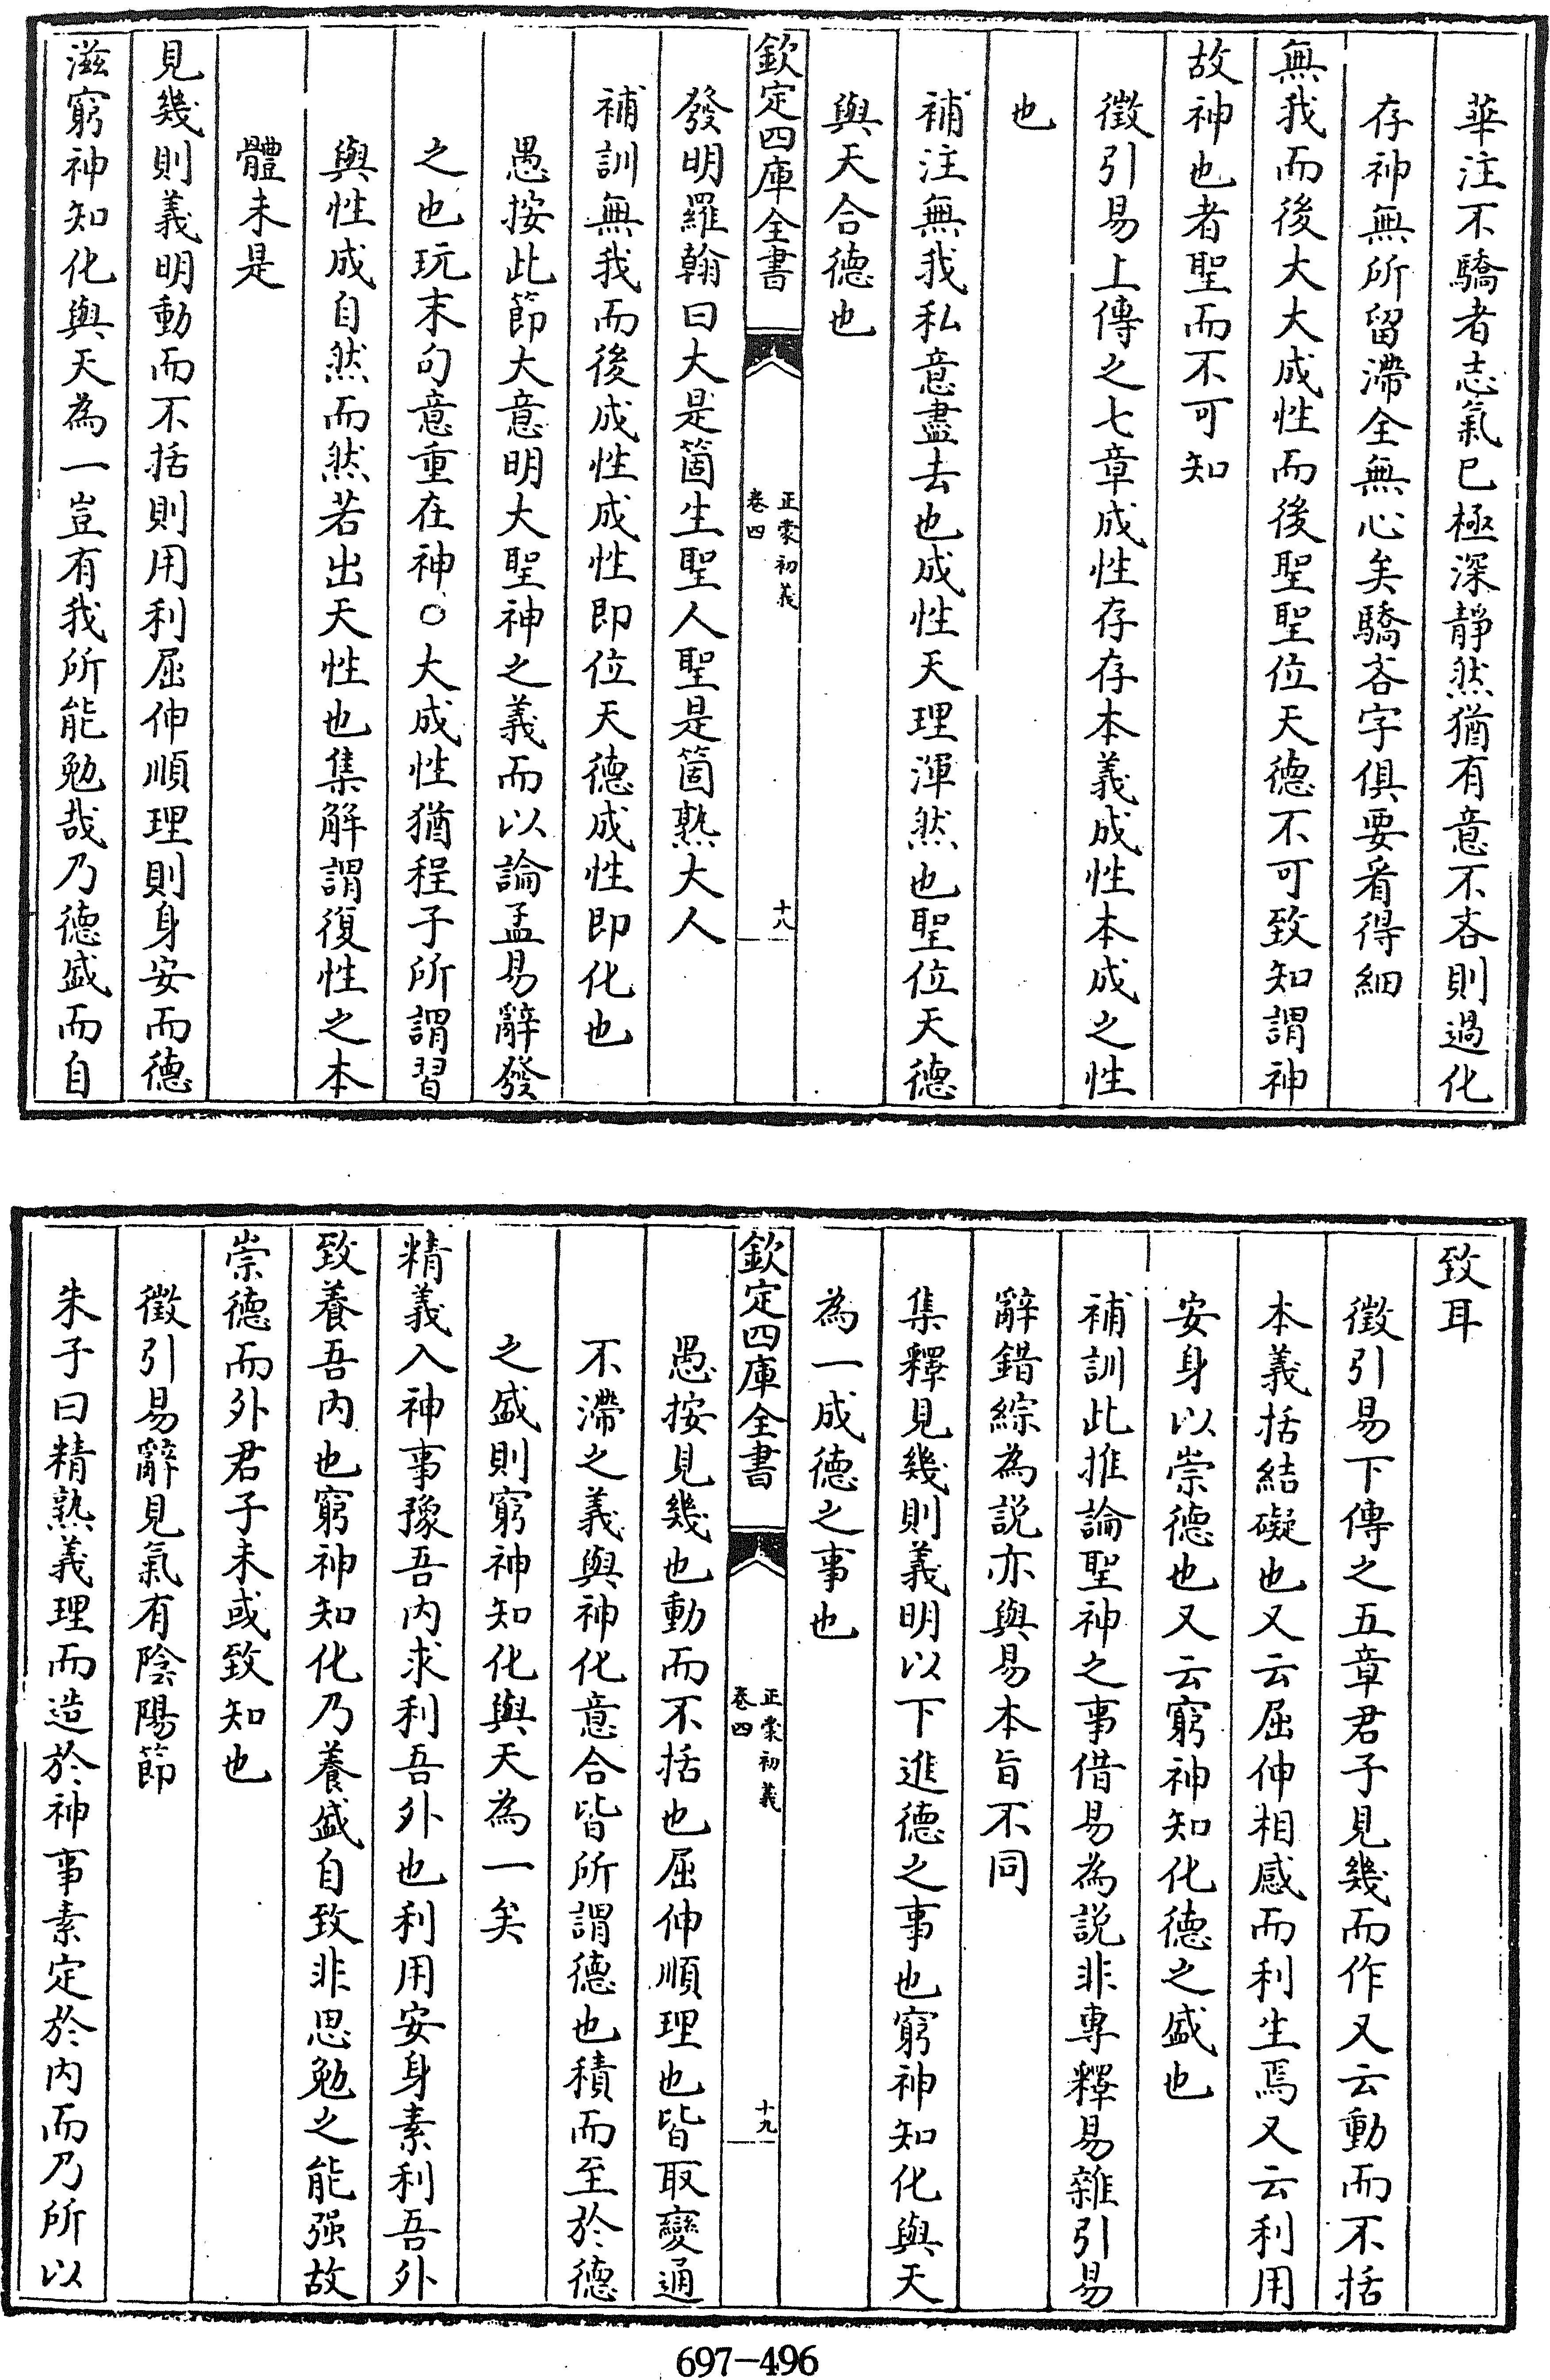 華注不驕者志氣已極深靜然猶有意不吝則過化
存神無所留滯全無心矣驕吝字俱要看得細
無我而後大大成性而後聖聖位天德不可致知謂神
故神也者聖而不可知
徵引易上傳之七章成性存存本義成性本成之性
也
補注無我私意盡去也成性天理渾然也聖位天德
與天合德也
欽定四庫全書
正蒙初義
卷四
十八
發明羅翰曰大是箇生聖人聖是箇熟大人
補訓無我而後成性成性即位天德成性即化也
愚按此節大意明大聖神之義而以論孟易辭發
之也玩末句意重在神○大成性猶程子所謂習
與性成自然而然若出天性也集解謂復性之本
體未是
見幾則義明動而不括則用利屈伸順理則身安而德
滋窮神知化與天為一豈有我所能勉哉乃德盛而自
致耳
徵引易下傳之五章君子見幾而作又云動而不括
本義括結礙也又云屈伸相感而利生焉又云利用
安身以崇德也又云窮神知化德之盛也
補訓此推論聖神之事借易為説非專釋易雜引易
辭錯綜為説亦與易本旨不同
集釋見幾則義明以下進德之事也窮神知化與天
為一成德之事也
欽定四庫全書
正蒙初義
卷四
十九
愚按見幾也動而不括也屈伸順理也皆取變通
不滯之義與神化意合皆所謂德也積而至於德
之盛則窮神知化與天為一矣
精義入神事豫吾内求利吾外也利用安身素利吾外
致養吾内也窮神知化乃養盛自致非思勉之能强故
崇德而外君子未或致知也
徵引易辭見氣有陰陽節
朱子曰精熟義理而造於神事素定於内而乃所以
697-496